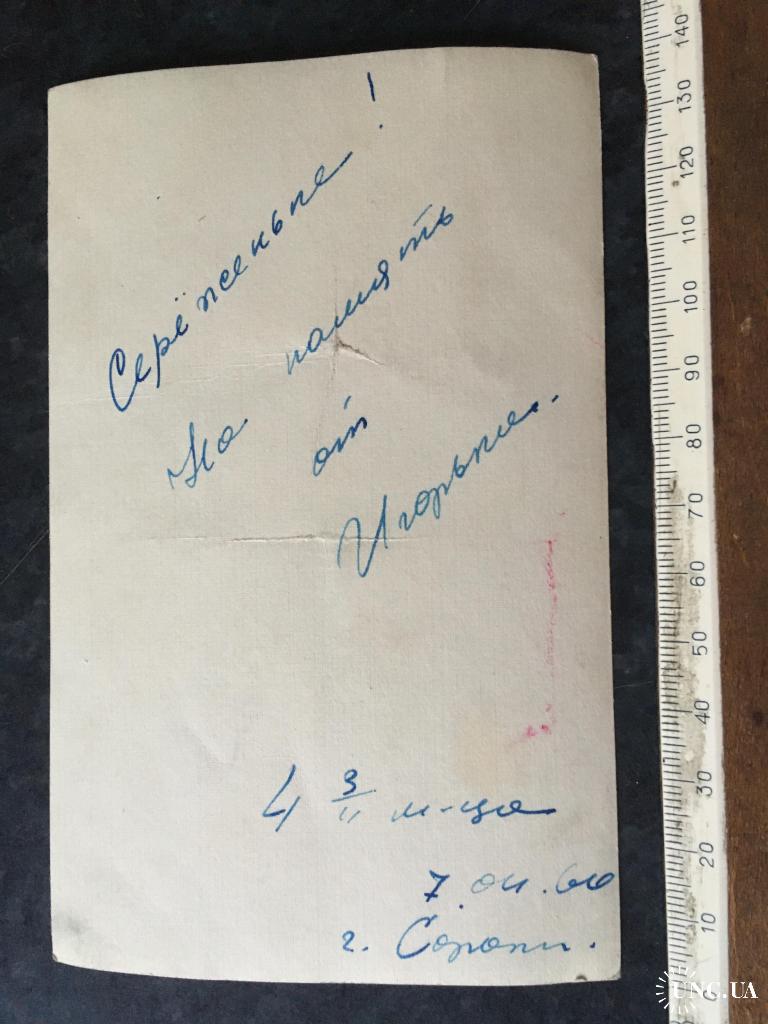 Серёженьке!
На память
от
Игорька.
4 3/4 м-ца
7.04.60
г. Сороки.
140
130
120
110
100
90
80
70
60
50
40
30
20
10
UNC.UA